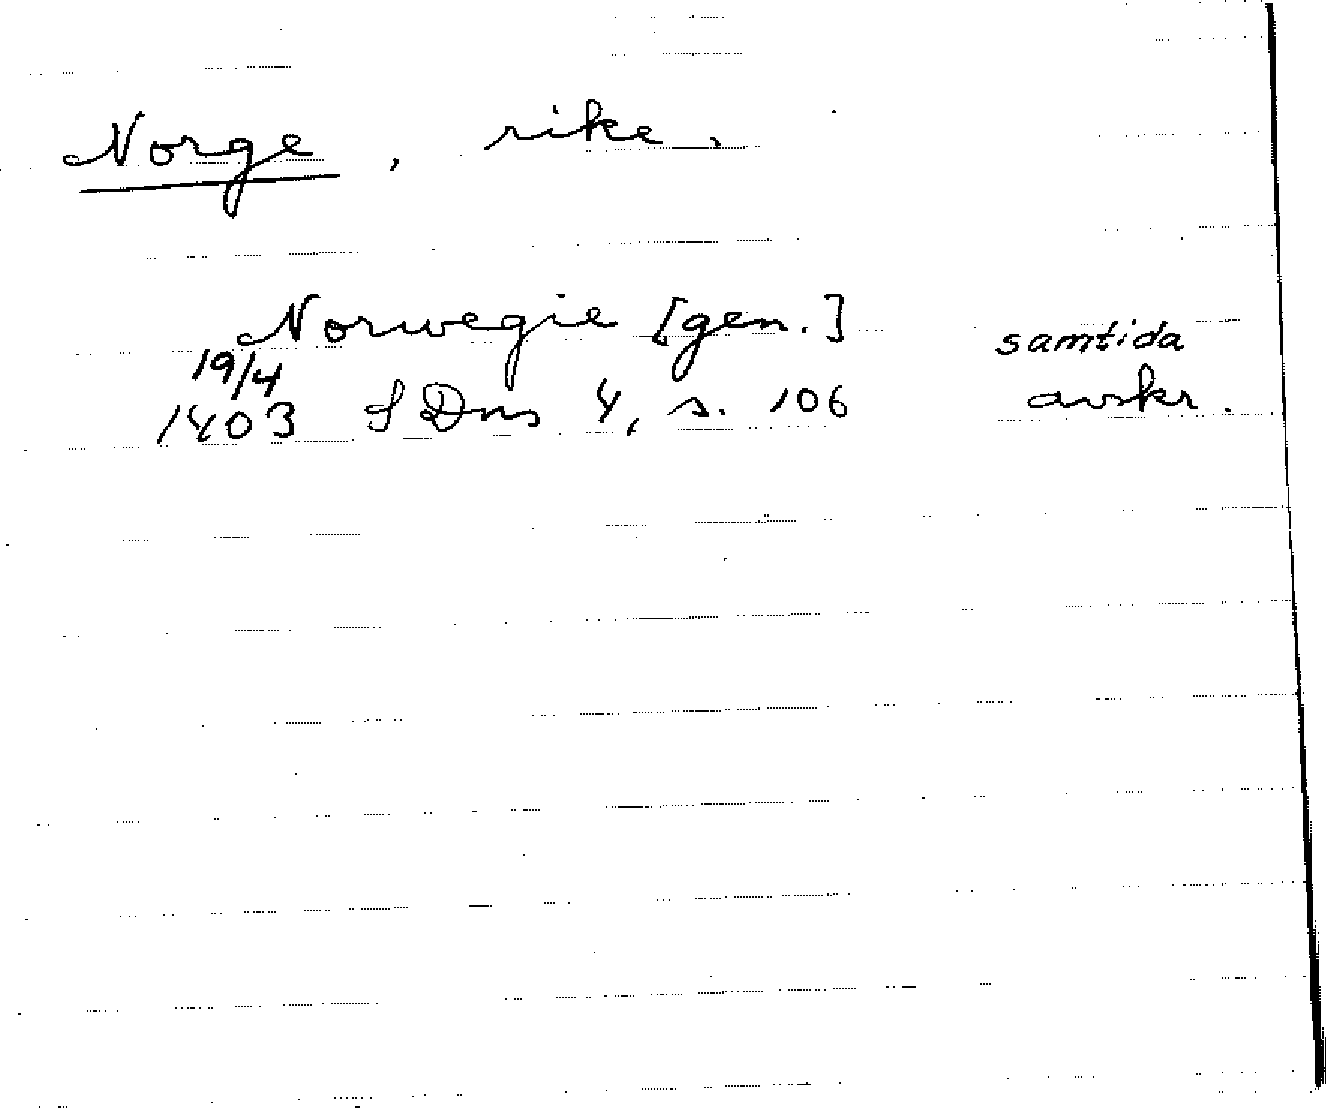 Norge, rike,
Norwegie [gen.] samtida
19/4
1403 SDns 4, s. 106 avskr.